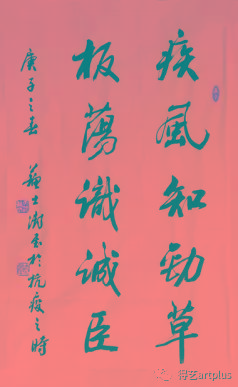 疾風知勁草
板蕩識誠臣
庚子之春
蘇士澍書於抗疫之時
得艺artplus